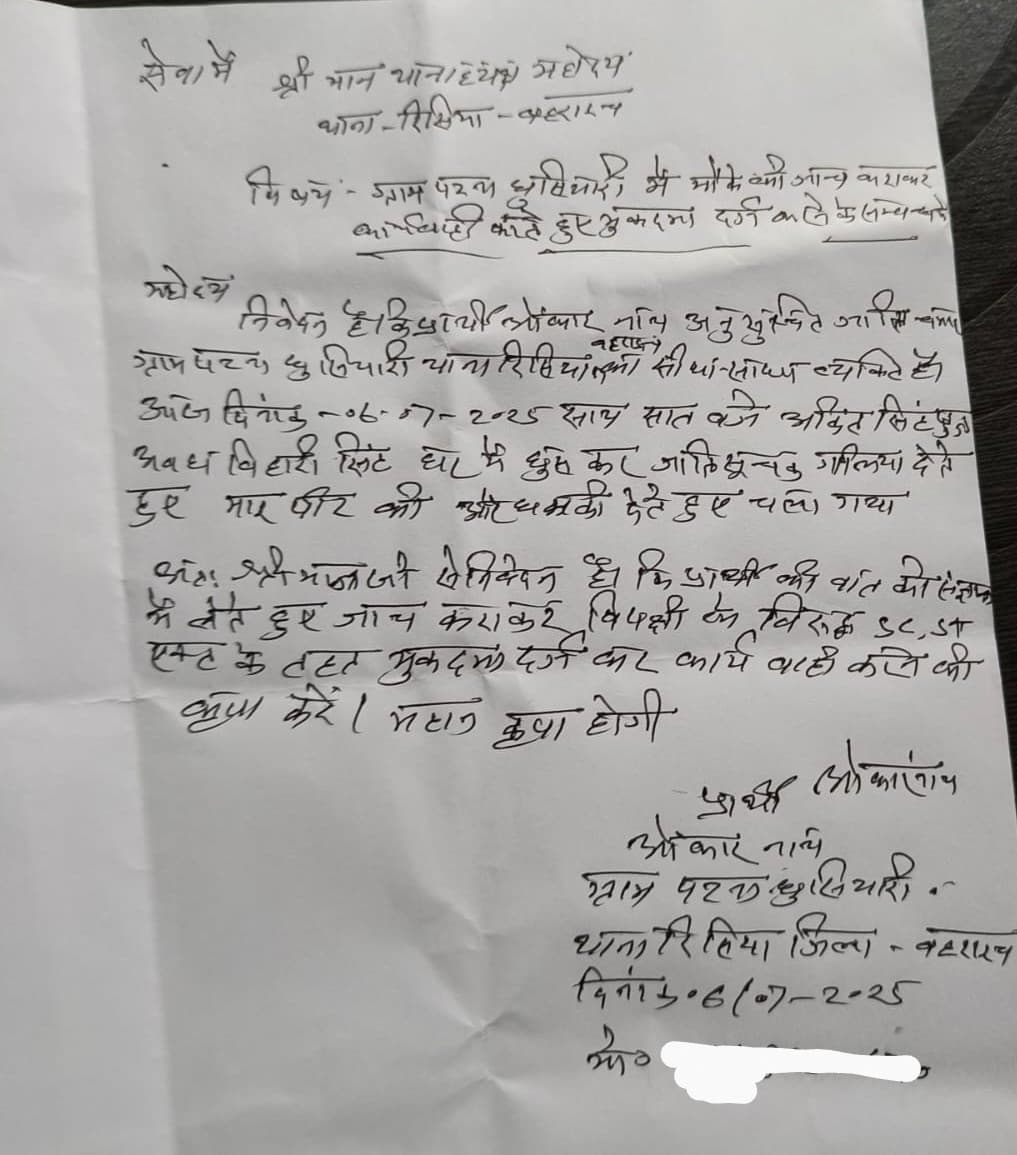 सेवा में
श्री मान थानाध्यक्ष महोदय
थाना - रिसिया - बहराइच
विषय - ग्राम पटना घुसियारी में मौके की जांच कराकर
कार्यवाही करते हुए मुकदमा दर्ज करने के सम्बन्ध में
महोदय
निवेदन है कि प्रार्थी ओंकार नाथ अनुसूचित जाति
बहराइच
ग्राम पटना घुसियारी थाना रिसिया का सीधा-साधा व्यक्ति है
आज दिनांक - 06-07-2025 सायं सात बजे अंकित सिंह पुत्र
अवध विहारी सिंह घर में घुस कर जातिसूचक गालिया देते
हुए मार पीट की और धमकी देते हुए चला गया
अतः श्रीमान जी से निवेदन है कि प्रार्थी की बात को संज्ञान
में लेते हुए जांच कराकर विपक्षी के विरुद्ध SC, ST
एक्ट के तहत मुकदमा दर्ज कर कार्यवाही करने की
कृपा करें। महान कृपा होगी
ओंकारनाथ
प्रार्थी
ओंकार नाथ
ग्राम पटना घुसियारी
थाना रिसिया जिला - बहराइच
दिनांक 06/07-2025
मो०